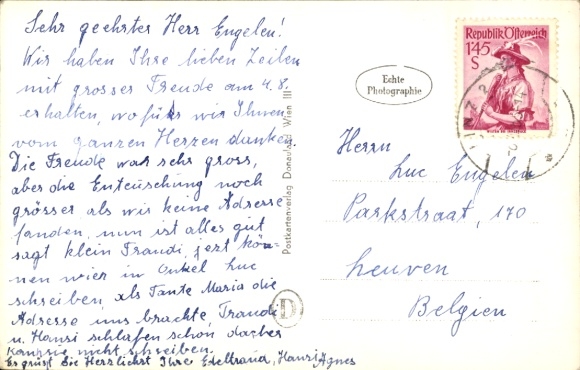 Sehr geehrter Herr Engelen!
Wir haben Ihre lieben Zeilen
mit grosser Freude am 4.8.
erhalten, wofür wir Ihnen
vom ganzen Herzen danken.
Die Freude war sehr gross,
aber die Enteuschung noch
grösser als wir keine Adresse
fanden, nun ist alles gut
sagt klein Traudi, jezt kön-
nen wier in Onkel Luc
schreiben, als Tante Maria die
Adresse uns brachte, Traudi
u. Hansi schlafen schon daher
kann sie nicht schreiben.
Es grüst Sie Herzlichst Ihre Edeltraud, Hansi, Agnes
Postkartenverlag Donauland Wien III
Echte
Photographie
Republik Österreich
1'45
S
LINZ 2
Herrn
Luc Engelen
Parkstraat, 170
Leuven
Belgien